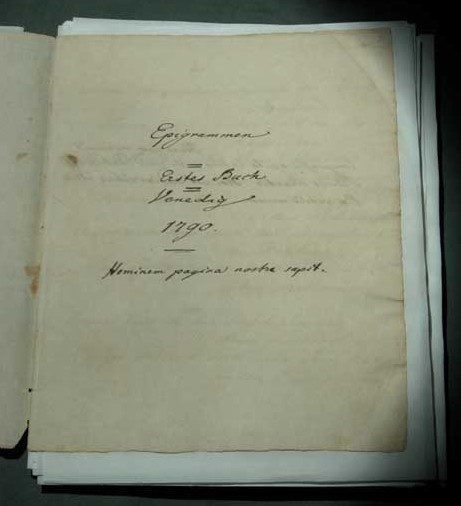 Epigrammen
Erstes Buch
Venedig
1790.
Hominem pagina nostra sapit.